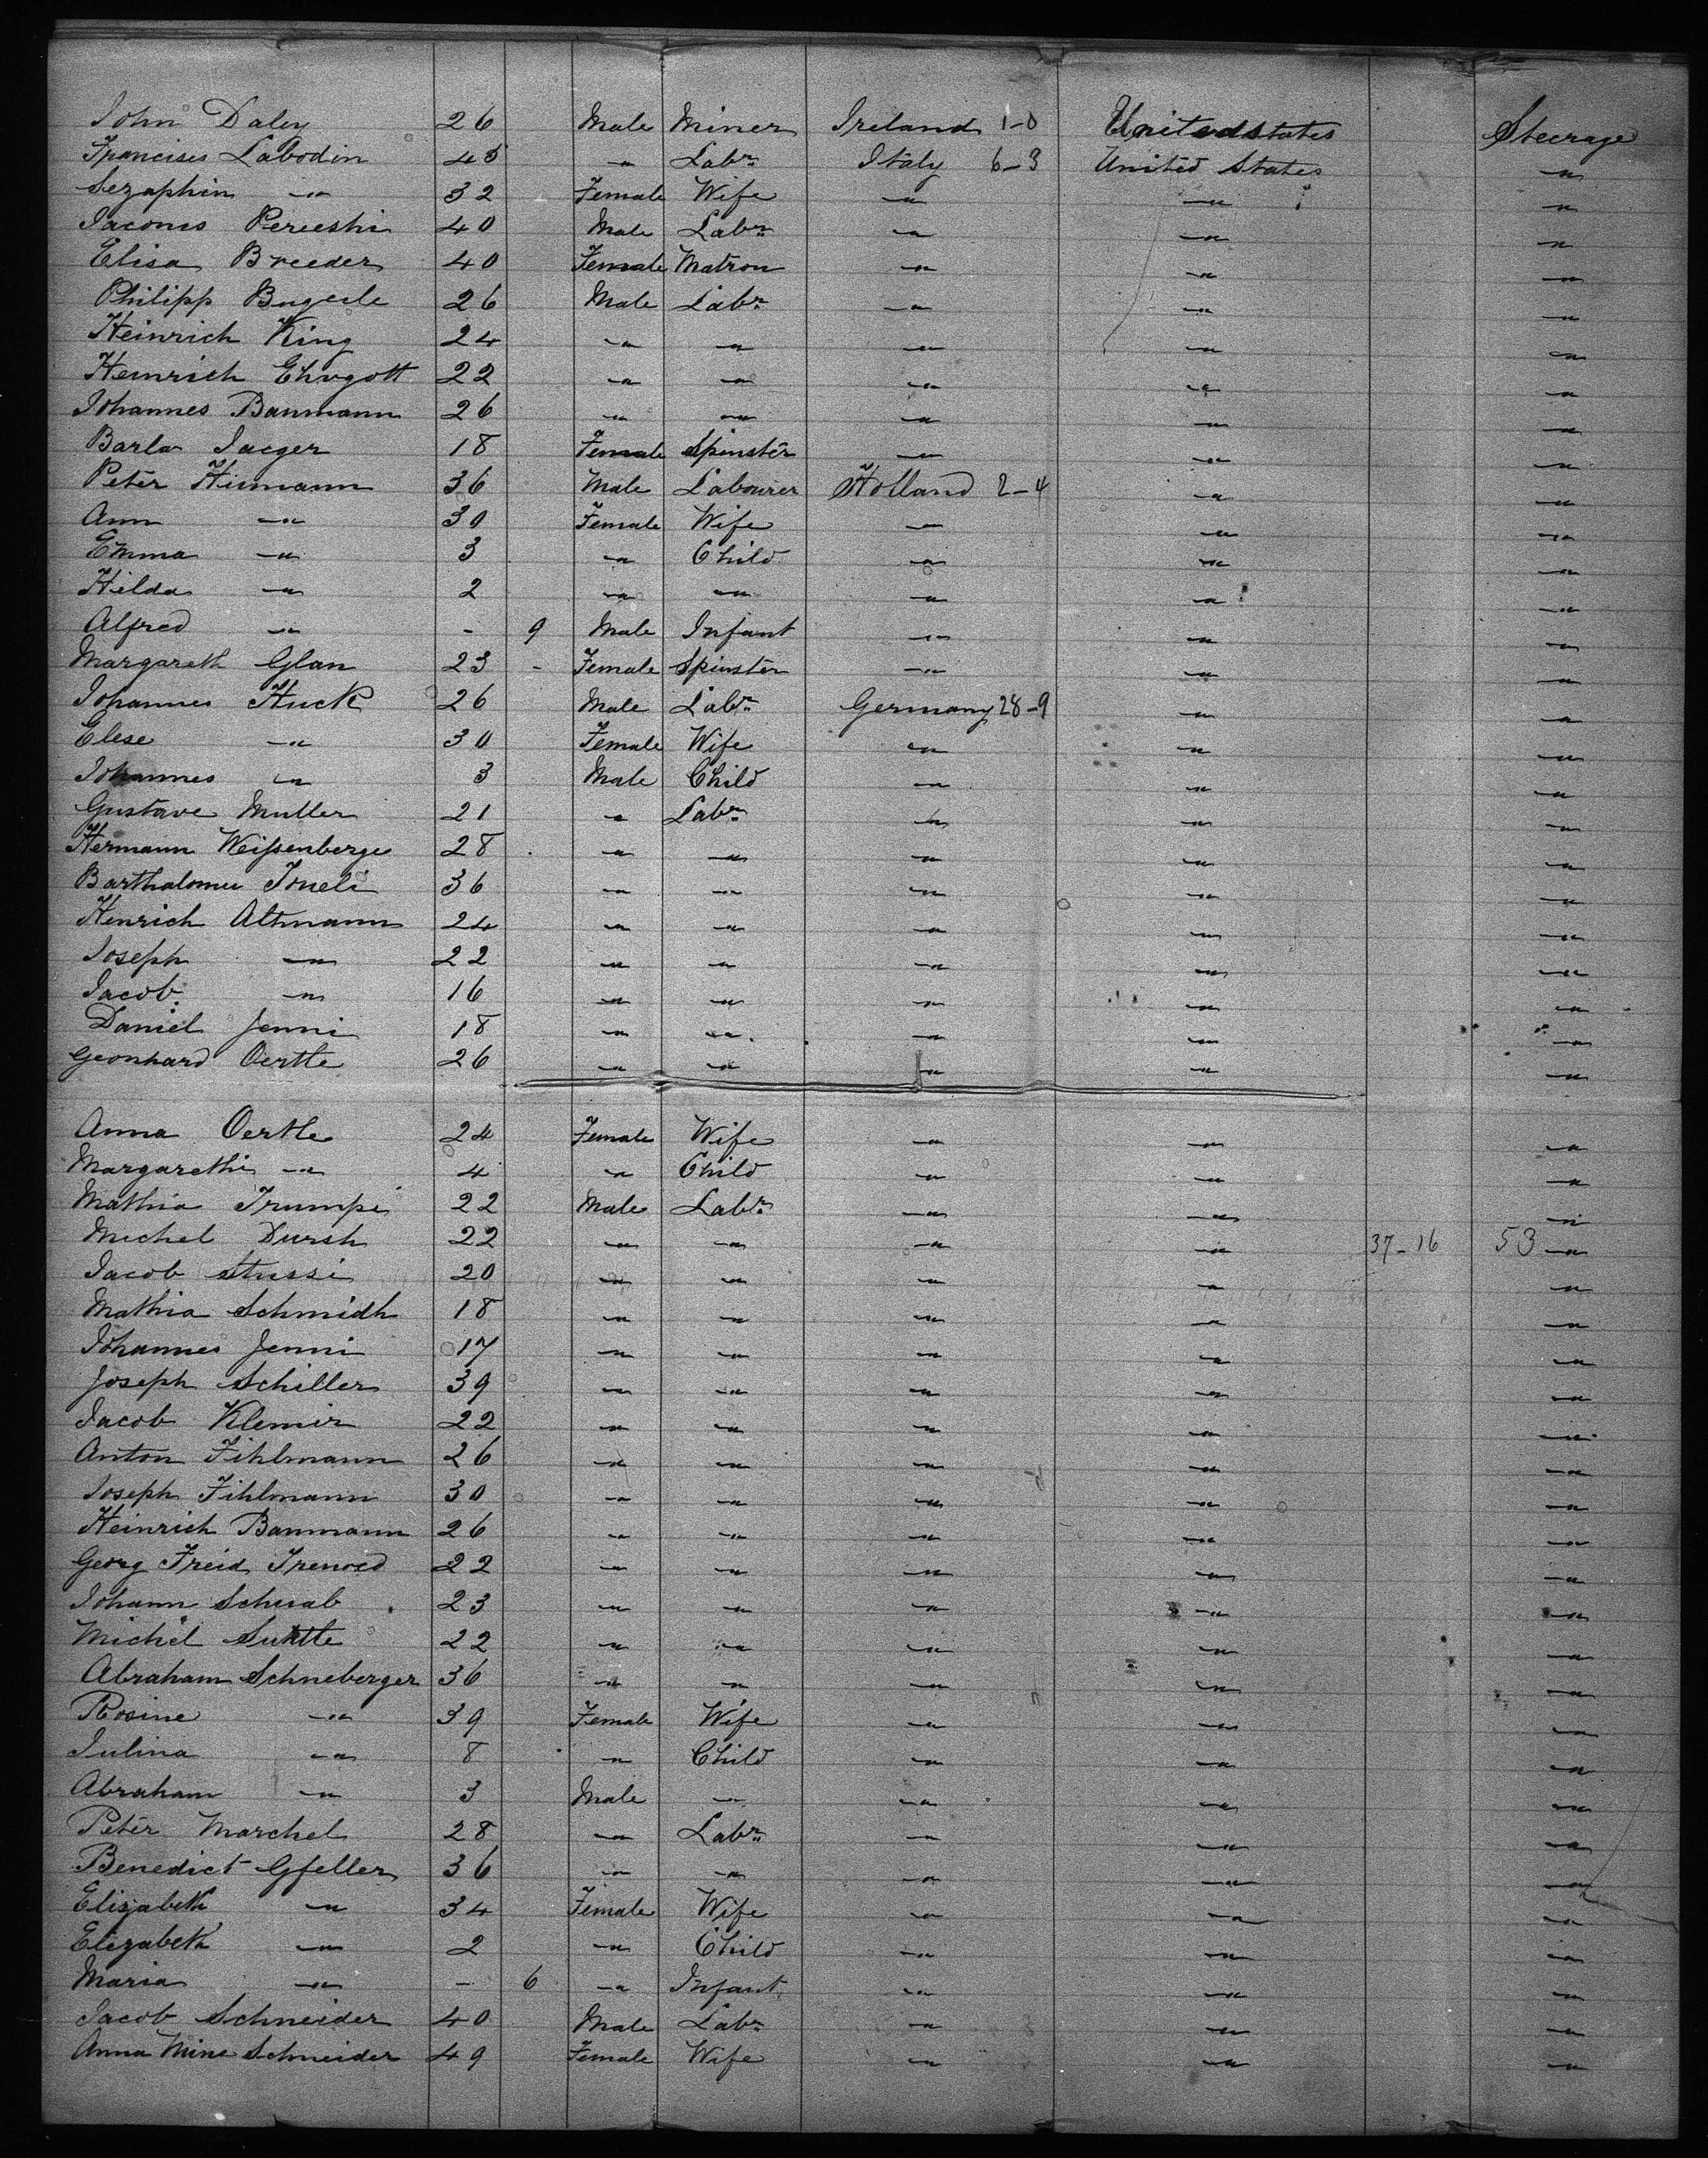 John Daley 26 Male Miner Ireland 1-0 United States Steerage
Francises Labodin 45 -"- Labr. Italy 6-3 United States -"-
Sezaphin -"- 32 Female Wife -"- -"- -"-
Jacomo Pereeshi 40 Male Labr. -"- -"- -"-
Elisa Breeder 40 Female Matron -"- -"- -"-
Philipp Bugele 26 Male Labr. -"- -"- -"-
Heinrich King 24 -"- -"- -"- -"- -"-
Heinrich Ehrgott 22 -"- -"- -"- -"- -"-
Johannes Banmann 26 -"- -"- -"- -"- -"-
Barla Jaeger 18 Female Spinster -"- -"- -"-
Peter Hiemann 36 Male Labourer Holland 2-4 -"- -"-
Ann -"- 30 Female Wife -"- -"- -"-
Emma -"- 3 -"- Child -"- -"- -"-
Hilda -"- 2 -"- -"- -"- -"- -"-
Alfred -"- - 9 Male Infant -"- -"- -"-
Margareth Glan 23 - Female Spinster -"- -"- -"-
Johannes Huck 26 Male Labr. Germany 28-9 -"- -"-
Elese -"- 30 Female Wife -"- -"- -"-
Johannes -"- 3 Male Child -"- -"- -"-
Gustave Muller 21 -"- Labr. -"- -"- -"-
Hermann Weissenberge 28 -"- -"- -"- -"- -"-
Barthalomu Joneli 36 -"- -"- -"- -"- -"-
Henrich Altmann 24 -"- -"- -"- -"- -"-
Joseph -"- 22 -"- -"- -"- -"- -"-
Jacob -"- 16 -"- -"- -"- -"- -"-
Daniel Jenni 18 -"- -"- -"- -"- -"-
Geonhard Oertle 26 -"- -"- -"- -"- -"-
Anna Oertle 24 Female Wife -"- -"- -"-
Margarethi -"- 4 -"- Child -"- -"- -"-
Mathia Trumpi 22 Male Labr. -"- -"- -"-
Michel Dursh 22 -"- -"- -"- -"- 37-16 53 -"-
Jacob Stussi 20 -"- -"- -"- -"- -"-
Mathia Schmidh 18 -"- -"- -"- -"- -"-
Johannes Jenni 17 -"- -"- -"- -"- -"-
Joseph Schiller 39 -"- -"- -"- -"- -"-
Jacob Klemir 22 -"- -"- -"- -"- -"-
Anton Fihlmann 26 -"- -"- -"- -"- -"-
Joseph Fihlmann 30 -"- -"- -"- -"- -"-
Heinrich Banmann 26 -"- -"- -"- -"- -"-
Georg Freid 22 -"- -"- -"- -"- -"-
Johann Schwab 23 -"- -"- -"- -"- -"-
Michel 22 -"- -"- -"- -"- -"-
Abraham Schneberger 36 -"- -"- -"- -"- -"-
Rosine -"- 39 Female Wife -"- -"- -"-
Julina -"- 8 -"- Child -"- -"- -"-
Abraham -"- 3 Male -"- -"- -"- -"-
Peter Marchel 28 -"- Labr. -"- -"- -"-
Benedict Gfeller 36 -"- -"- -"- -"- -"-
Elizabeth -"- 34 Female Wife -"- -"- -"-
Elizabeth -"- 2 -"- Child -"- -"- -"-
Maria -"- - 6 -"- Infant -"- -"- -"-
Jacob Schneider 40 Male Labr. -"- -"- -"-
Anna Mine Schneider 49 Female Wife -"- -"- -"-